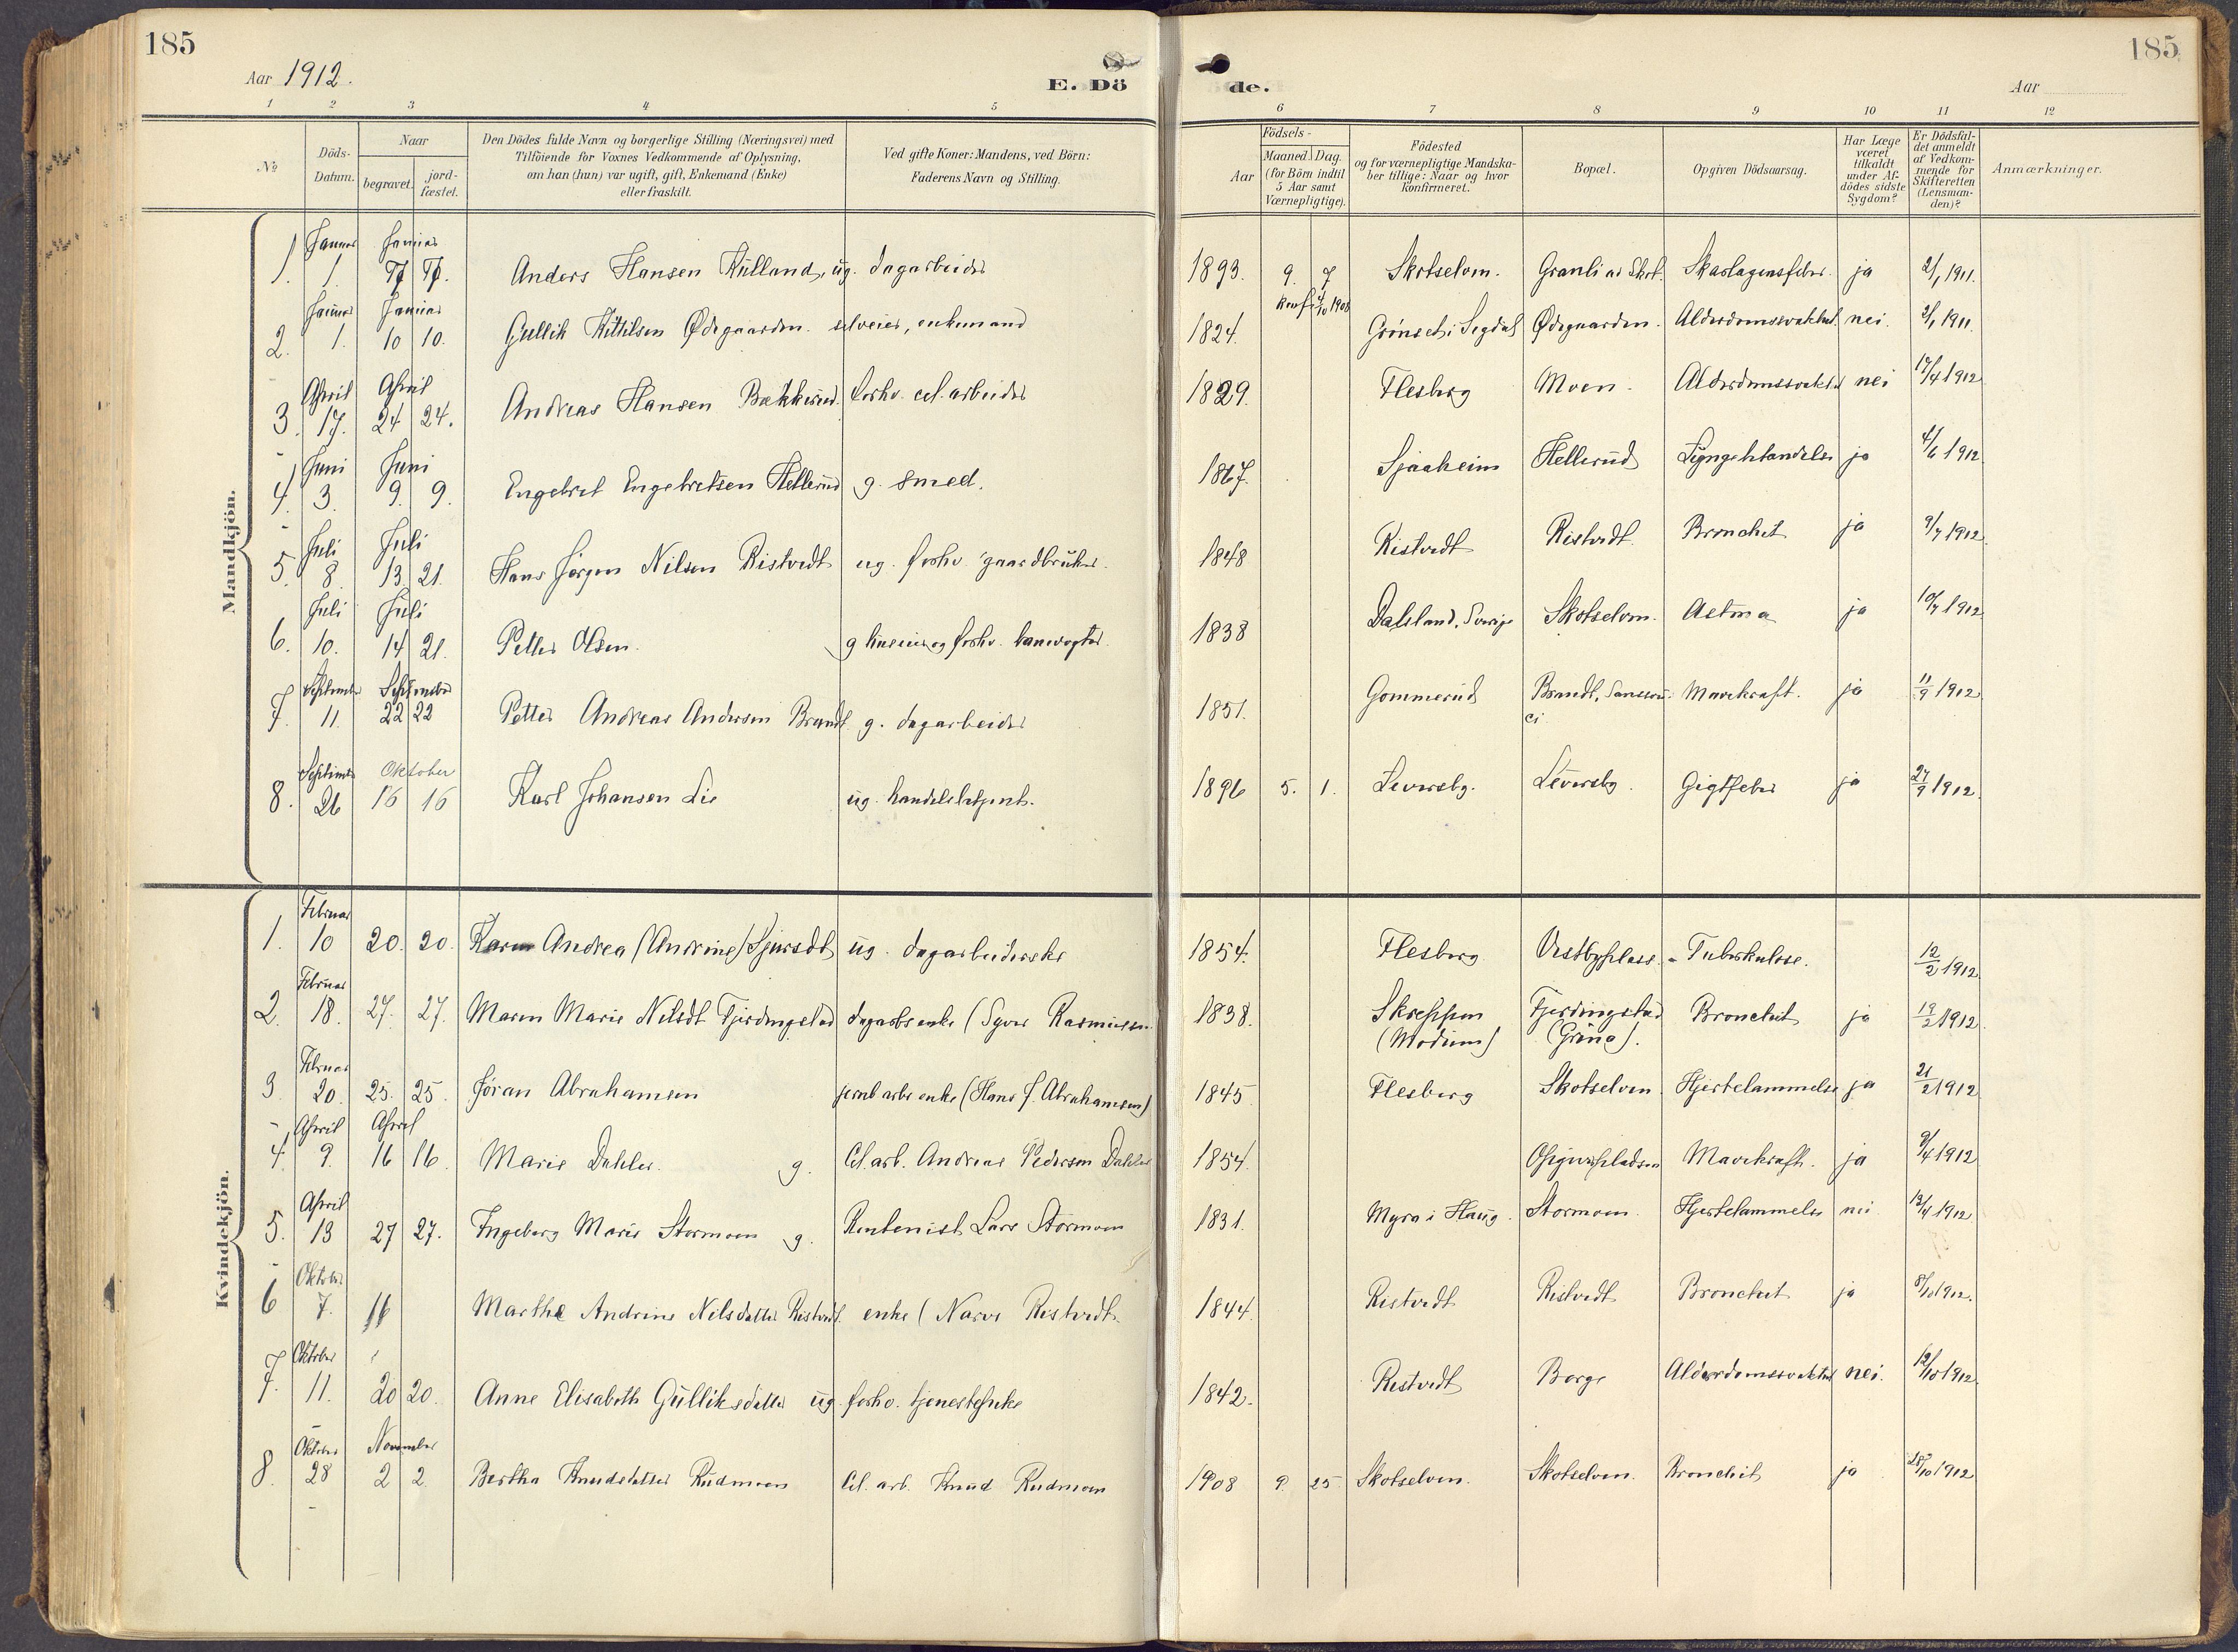 185
185
Aar 1912.
E. Dö
de.
Aar
1 2 3 4 5 6 7 8 9 10 11 12
No
Döds-Datum.
Naar
begravet.
jord-fæstet.
Den Dödes fulde Navn og borgerlige Stilling (Næringsvei) med
Tilföiende for Voxnes Vedkommende af Oplysning,
om han (hun) var ugift, gift, Enkemand (Enke)
eller fraskilt.
Ved gifte Koner: Mandens, ved Börn:
Faderens Navn og Stilling.
Födsels-
Aar
Maaned. Dag.
(for Börn indtil
5 Aar samt
Værnepligtige).
Födested
og for værnepligtige Mandska-
ber tillige: Naar og hvor
konfirmeret.
Bopæl.
Opgiven Dödsaarsag.
Har Læge
været
tilkaldt
under Af-
dödes sidste
Sygdom?
Er Dödsfal-
det anmeldt
af Vedkom-
mende for
Skifteretten
(Lensman-
den)?
Anmærkninger.
Mandkjön.
Januar Januar
1. 1. Anders Hansen Kulland, ug. dagarbeider 1893. 9. 7 Skotselven. Granli av Skot. Skarlagensfeber ja 2/1 1911.
konf. 4/10 1908
Januar Januar
2. 1. 10 10. Gullik Kittilsen Ødegaarden. selveier, enkemand 1824. Grönset i Sigdal Ødegaarden. Alderdomssvakhet. nei. 2/1 1911.
April April
3. 17. 24 24. Andreas Hansen Bakkerud. forhv. cel. arbeider 1829. Flesberg Moen. Alderdomssvakhet nei 17/4 1912
Juni Juni
4. 3. 9. 9. Engebret Engebretsen Hellerud g. smed. 1867. Sjaaheim Hellerud ja 4/6 1912
Juli Juli
5. 8. 13. 21. Hans Jørgen Nilsen Ristvedt ug. forhv. gaardbruker. 1848 Ristvedt Ristvedt Bronchit ja 9/7 1912.
Juli Juli
6. 10. 14 21. Petter Olsen. g huseier og forhv. banevogter. 1838 Dalsland, Sverige Skotselven. Astma ja 10/7 1912
September September
7. 11. 22 22 Petter Andreas Andersen Brandt g. dagarbeider 1851. Gommerud Brandt, Mavekræft. ja 11/9 1912
September Oktober
8. 26 16 16 Karl Johansen Lie ug. handelsbetjent. 1896 5. 1. Leversby. Leversby. Gigtfeber ja 27/9 1912.
Kvindekjön.
Februar
1. 10 20. 20. Karen Andrea (Andrine) Sjursdt ug. dagarbeiderske 1854. Flesberg Vestbyplass. Tuberkulose. 12/2 1912
Februar
2. 18. 27. 27. Maren Marie Nilsdt Fjerdingstad dagarbs enke (Syver Rasmussen 1838. Skreppen Fjerdingstad Bronchit ja 19/2 1912
(Modum) (Gruna).
Februar
3 20. 25. 25. Jöran Abrahamsen jernb arbs enke (Hans J. Abrahamsen) 1845. Flesberg Skotselven. Hjertelammelse ja 21/2 1912
April April
4. 9. 16 16. Marie Dahler. g. Cel. arb. Andreas Pedersen Dahler 1854. Mavekræft. ja 9/4 1912
April
5. 13 27 27. Ingeborg Marie Stormoen g. Rentenist Lars Stormoen 1831. Myra i Haug. Stormoen. Hjertelammelse nei 13/4 1912
Oktober
6 7. 16 Marthe Andrine Nilsdatter Ristvedt. enke (Narve Ristvedt. 1844. Ristvedt Ristvedt Bronchit ja 8/10 1912.
Oktober
7. 11. 20 20. Anne Elisabeth Gulliksdatter ug. forhv. tjenestepike 1842. Ristvedt Borge Alderdomssvakhet nei. 12/10 1912
Oktober November
8. 28 2 2 Bertha Knudsdatter Rudmoen Cel. arb. Knud Rudmoen 1908 9. 25. Skotselven. Skotselven. Bronchit ja 28/10 1912